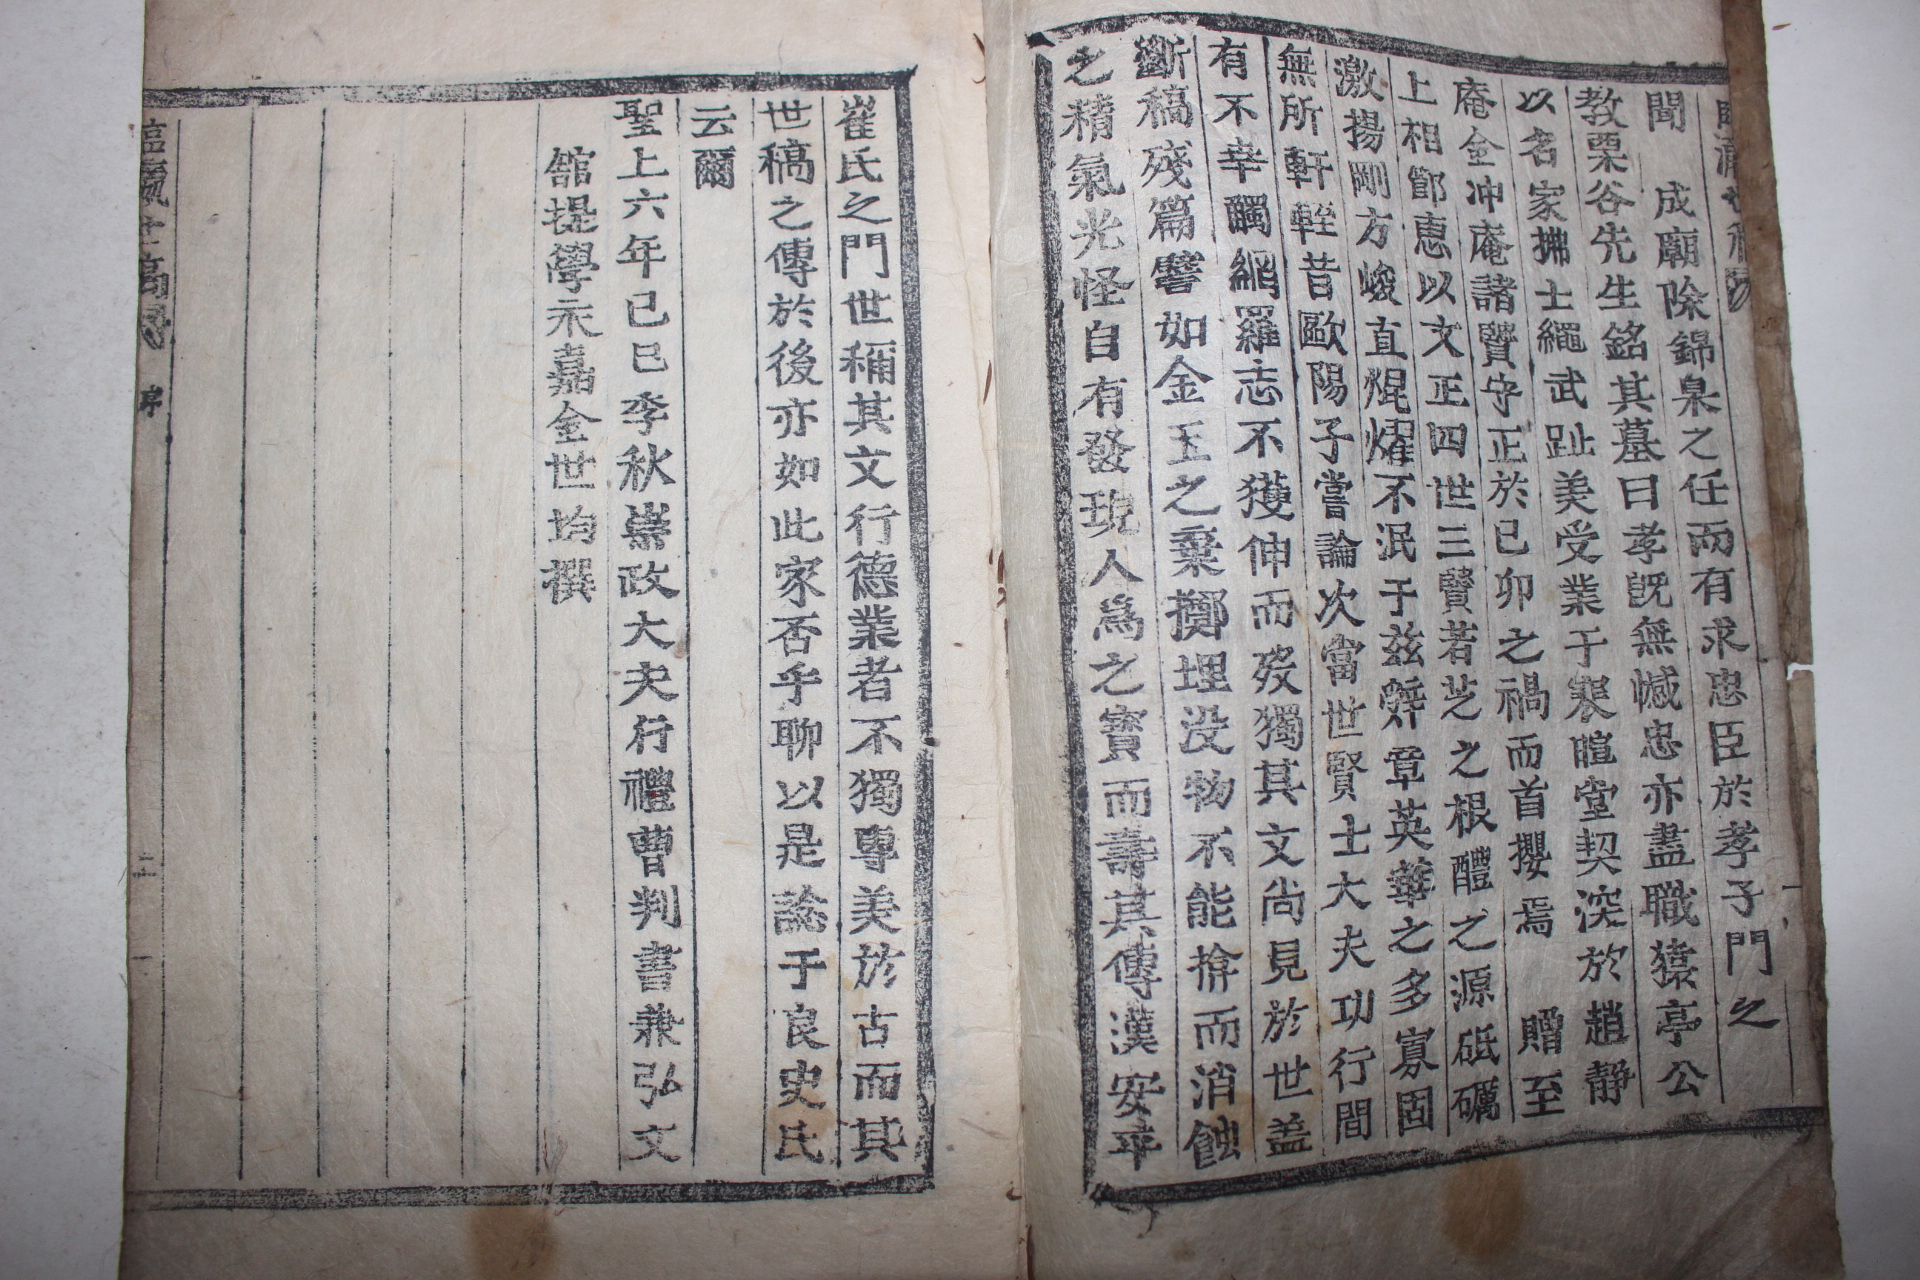 聞　成廟除錦臬之任而有求忠臣於孝子門之
教栗谷先生銘其墓曰孝旣無憾忠亦盡職猿亭公
以名家拂士繩武趾美受業于寒暄堂契深於趙靜
庵金冲庵諸賢守正於已卯之禍而首攖焉　贈至
上相節惠以文正四世三賢若芝之根醴之源砥礪
激揚剛方峻直焜燿不泯于玆辭章英華之多寡固
無所軒輊昔歐陽子嘗論次當世賢士大夫功行間
有不幸觸網羅志不獲伸而歿獨其文尚見於世盖
斷稿殘篇譬如金玉之棄擲埋没物不能揜而消蝕
之精氣光怪自有發現人爲之寶而壽其傳漢安平
崔氏之門世稱其文行德業者不獨專美於古而其
世稿之傳於後亦如此家否乎聊以是諗于良史氏
云爾
聖上六年已巳季秋崇政大夫行禮曹判書兼弘文
舘提學永嘉金世均撰
世稿 序
二